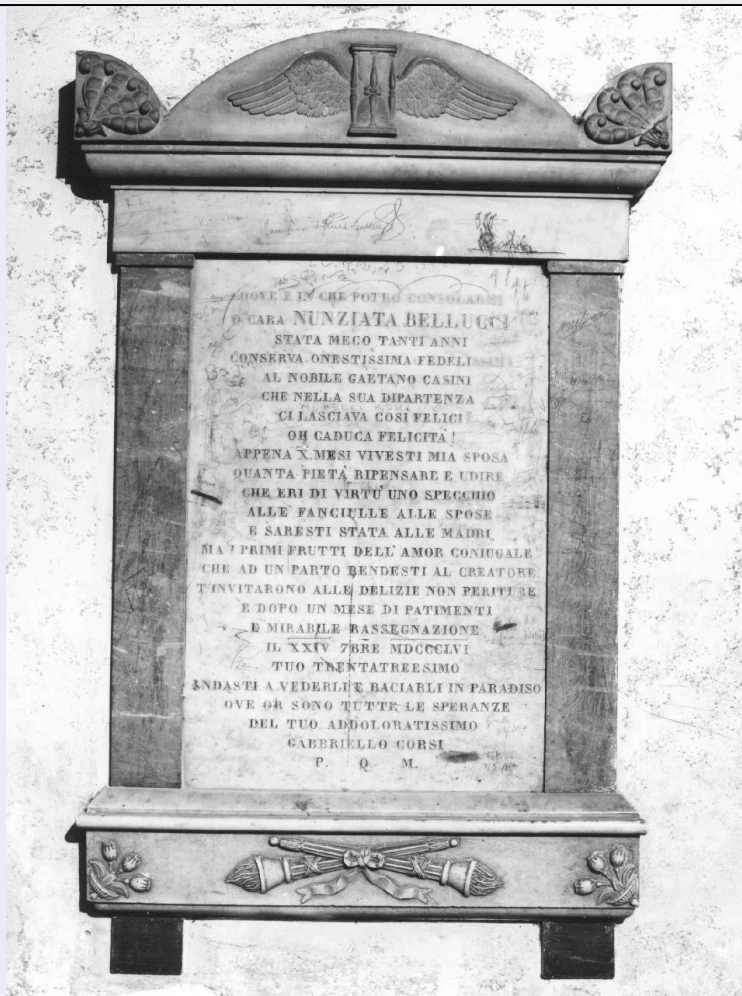 DOVE E IN CHE POTRÒ CONSOLARMI
O CARA NUNZIATA BELLUCCI
STATA MECO TANTI ANNI
CONSERVA ONESTISSIMA FEDELISSIMA
AL NOBILE GAETANO CASINI
CHE NELLA SUA DIPARTENZA
CI LASCIAVA COSÌ FELICI
OH CADUCA FELICITÀ!
APPENA X.MESI VIVESTI MIA SPOSA
QUANTA PIETÀ RIPENSARE E UDIRE
CHE ERI DI VIRTÙ UNO SPECCHIO
ALLE FANCIULLE ALLE SPOSE
E SARESTI STATA ALLE MADRI,
MA I PRIMI FRUTTI DELL'AMOR CONIUGALE
CHE AD UN PARTO RENDESTI AL CREATORE
T'INVITARONO ALLE DELIZIE NON PERITURE
E DOPO UN MESE DI PATIMENTI
E MIRABILE RASSEGNAZIONE
IL XXIV 7BRE MDCCCLVI
TUO TRENTATREESIMO
ANDASTI A VEDERLI E BACIARLI IN PARADISO
OVE OR SONO TUTTE LE SPERANZE
DEL TUO ADDOLORATISSIMO
GABBRIELLO CORSI
P. Q. M.